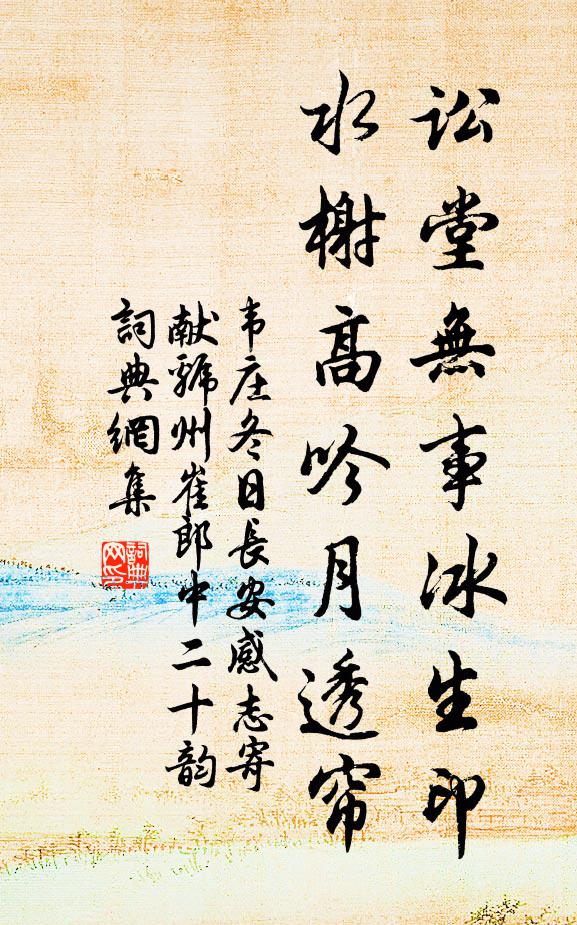 訟堂無事冰生印
水榭高吟月透帘
韦庄冬日長安感志寄
献虢州崔郎中二十韵
詞典網集
詞典網印